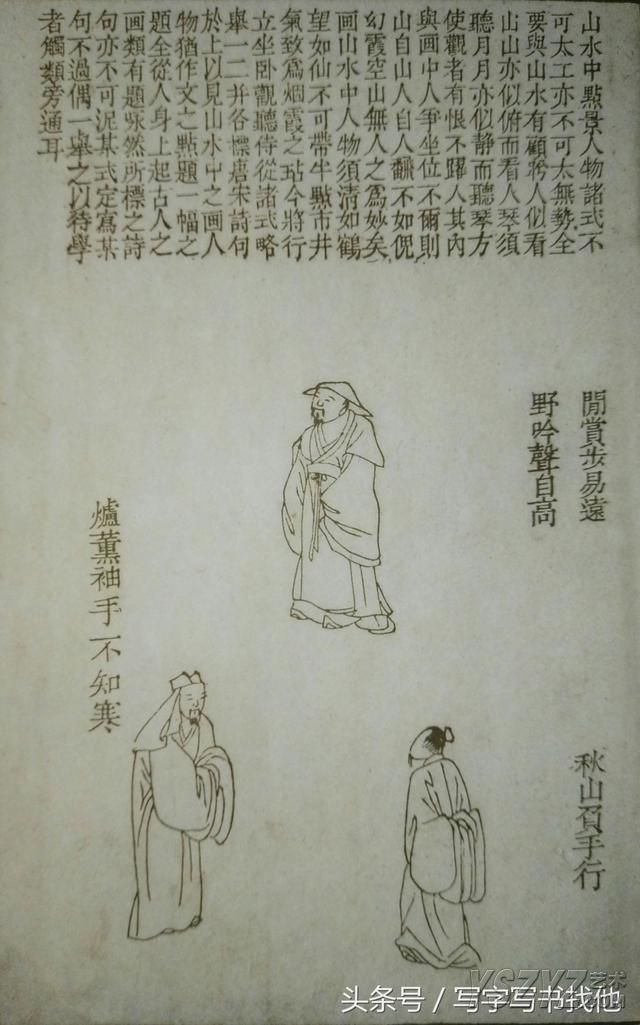 山水中點景人物諸式不
可太工亦不可太無勢全
要與山水有顧盻人似看
山山亦似俯而看人琴須
聽月月亦似静而聽琴方
使觀者有恨不躍入其內
與画中人爭坐位不爾則
山自山人自人翻不如倪
幻霞空山無人之爲妙矣
画山水中人物須清如鶴
望如仙不可帶半點市井
氣致爲烟霞之玷今將行
立坐卧觀聽侍從諸式略
舉一二并各標唐宋詩句
於上以見山水中之画人
物猶作文之點題一幅之
題全從人身上起古人之
画類有題咏然所標之詩
句亦不可泥某式定寫某
句不過偶一舉之以待學
者觸類旁通耳
閒賞步易遠
野吟聲自高
爐薰袖手不知寒
秋山負手行
头条号/写字写书找他